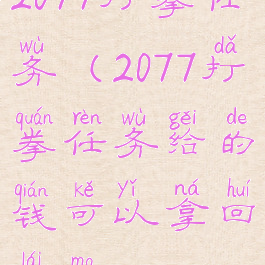 2077打拳任
wù dǎ
务（2077打
quán rèn wù gěi de
拳任务给的
qián kě yǐ ná huí
钱可以拿回
lái ma